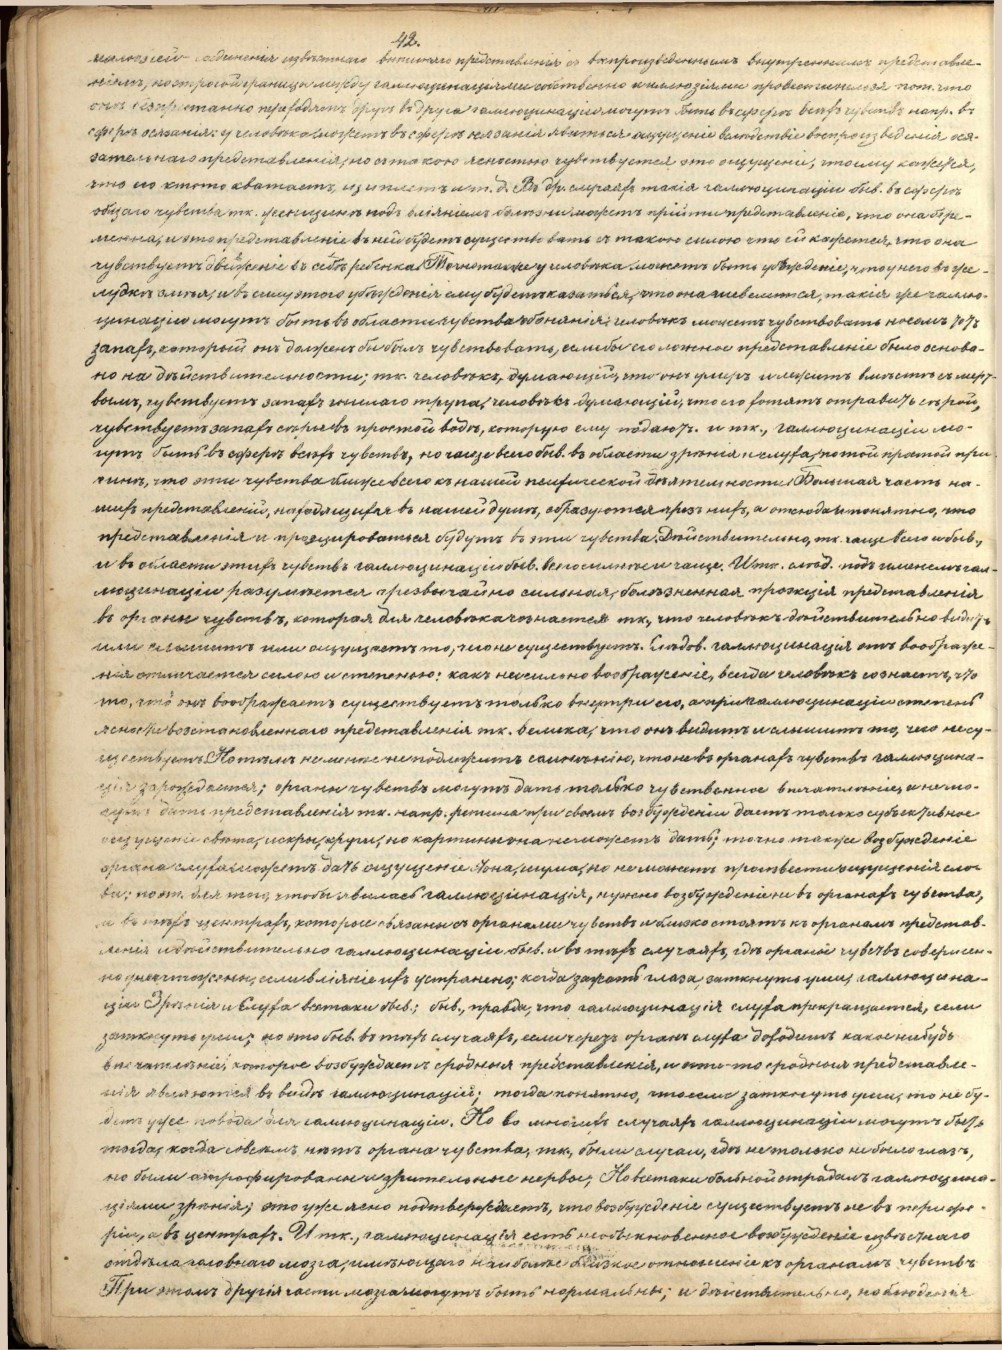 42.
иллюзией соединенія извѣстнаго внѣшняго представленія съ воспроизведеннымъ внутреннимъ представле-
ніемъ, но строгой границы между галлюцинаціями собственно и иллюзіями провести нельзя пот. что
онѣ безпрестанно переходятъ другъ въ друга галлюцинаціи могутъ быть въ сферѣ всѣхъ чувствъ напр. въ
сферѣ осязанія: у человѣка можетъ въ сферѣ осязанія явиться ощущеніе вслѣдствіе воспроизведенія ося-
зательнаго представленія, но съ такою ясностью чувствуется это ощущеніе, что ему кажется,
что его кто-то хватаетъ, щиплетъ и т. д. Въ др. случаяхъ такія галлюцинаціи быв. въ сферѣ
общаго чувства тк. женщинѣ подъ вліяніемъ болѣзни можетъ прійти представленіе, что она бере-
менна, и это представленіе въ ней будетъ существовать съ такою силою что ей кажется, что она
чувствуетъ движеніе въ себѣ ребенка. Точно также у человѣка можетъ быть убѣжденіе, что у него въ же-
лудкѣ змѣя, и въ силу этого убѣжденія ему будетъ казаться, что она шевелится, такія же галлю-
цинаціи могутъ быть въ области чувства обонянія: человѣкъ можетъ чувствовать носомъ тотъ
запахъ, который онъ долженъ бы былъ чувствовать, если бы его ложное представленіе было основа-
но на дѣйствительности; тк. человѣкъ, думающій, что онъ умеръ и лежитъ вмѣстѣ съ мерт-
вымъ, чувствуетъ запахъ гнилаго трупа, человѣкъ думающій, что его хотятъ отравить сѣрой,
чувствуетъ запахъ сѣры въ простой водѣ, которую ему подаютъ. и тк., галлюцинаціи мо-
гутъ быть въ сферѣ всѣхъ чувствъ, но чаще всего быв. въ области зрѣнія и слуха, по той простой при-
чинѣ, что эти чувства ближе всего къ нашей психической дѣятельности. Большая часть на-
шихъ представленій, находящихся въ нашей душѣ, образуются чрезъ нихъ, а отсюда и понятно, что
представленія и проэцироваться будутъ въ эти чувства. Дѣйствительно, тк. чаще всего и быв.,
и въ области этихъ чувствъ галлюцинаціи быв. всего сильнѣе и чаще. И тк. слѣд. подъ именемъ гал-
люцинаціи разумѣется чрезвычайно сильная, болѣзненная проэкція представленія
въ органы чувствъ, которая для человѣка сознается тк., что человѣкъ дѣйствительно видитъ
или слышитъ или ощущаетъ то, чего не существуетъ. Слѣдов. галлюцинація отъ воображе-
нія отличается силою и степенью: какъ ни сильно воображеніе, всегда человѣкъ сознаетъ, что
то, что онъ воображаетъ существуетъ только внутри его, а при галлюцинаціи степень
ясности возстановленнаго представленія тк. велика, что онъ видитъ и слышитъ то, чего не су-
ществуетъ. Но тѣмъ не менѣе не подлежитъ сомнѣнію, что не въ органахъ чувствъ галлюцина-
ція зарождается; органы чувствъ могутъ дать только чувственное впечатлѣніе, и не мо-
гутъ дать представленія тк. напр. ретина при своемъ возбужденіи даетъ только субъективное
ощущеніе свѣта, искры, круги, но картины она не можетъ дать; точно также возбужденіе
органа слуха можетъ дать ощущеніе тона, шума, но не можетъ произвести ощущенія сло-
ва; пот. для того, чтобы явилась галлюцинація, нужно возбужденіе не въ органахъ чувства,
а въ тѣхъ центрахъ, которые связаны съ органами чувствъ и близко стоятъ къ органамъ представ-
ленія и дѣйствительно галлюцинаціи быв. и въ тѣхъ случаяхъ, гдѣ органы чувствъ совершен-
но уничтожены, если вліяніе ихъ устранено; когда зажать глаза заткнуть уши, галлюцина-
ціи Зрѣнія и Слуха всетаки быв.; быв., правда, что галлюцинація слуха прекращается, если
заткнуть уши; но это быв. въ тѣхъ случаяхъ, если черезъ органъ слуха доходитъ какое нибудь
впечатлѣніе, которое возбуждаетъ сродныя представленія, и эти-то сродныя представле-
нія являются въ видѣ галлюцинацій; тогда понятно, что если заткнуть уши, то не бу-
детъ уже повода для галлюцинаціи. Но во многихъ случаяхъ галлюцинаціи могутъ быть
тогда, когда совсѣмъ нѣтъ органа чувства, тк., были случаи, гдѣ не только не было глазъ,
но были атрофированы и зрительные нервы; Но всетаки больной страдалъ галлюцина-
ціями зрѣнія; это уже ясно подтверждаетъ, что возбужденіе существуетъ не въ перифе-
ріи, а въ центрахъ. И тк., галлюцинація есть необыкновенное возбужденіе извѣстнаго
отдѣла головнаго мозга, имѣющаго наиболѣе близкое отношеніе къ органамъ чувствъ
При этомъ другія части мозга могутъ быть нормальны; и дѣйствительно, наблюденія